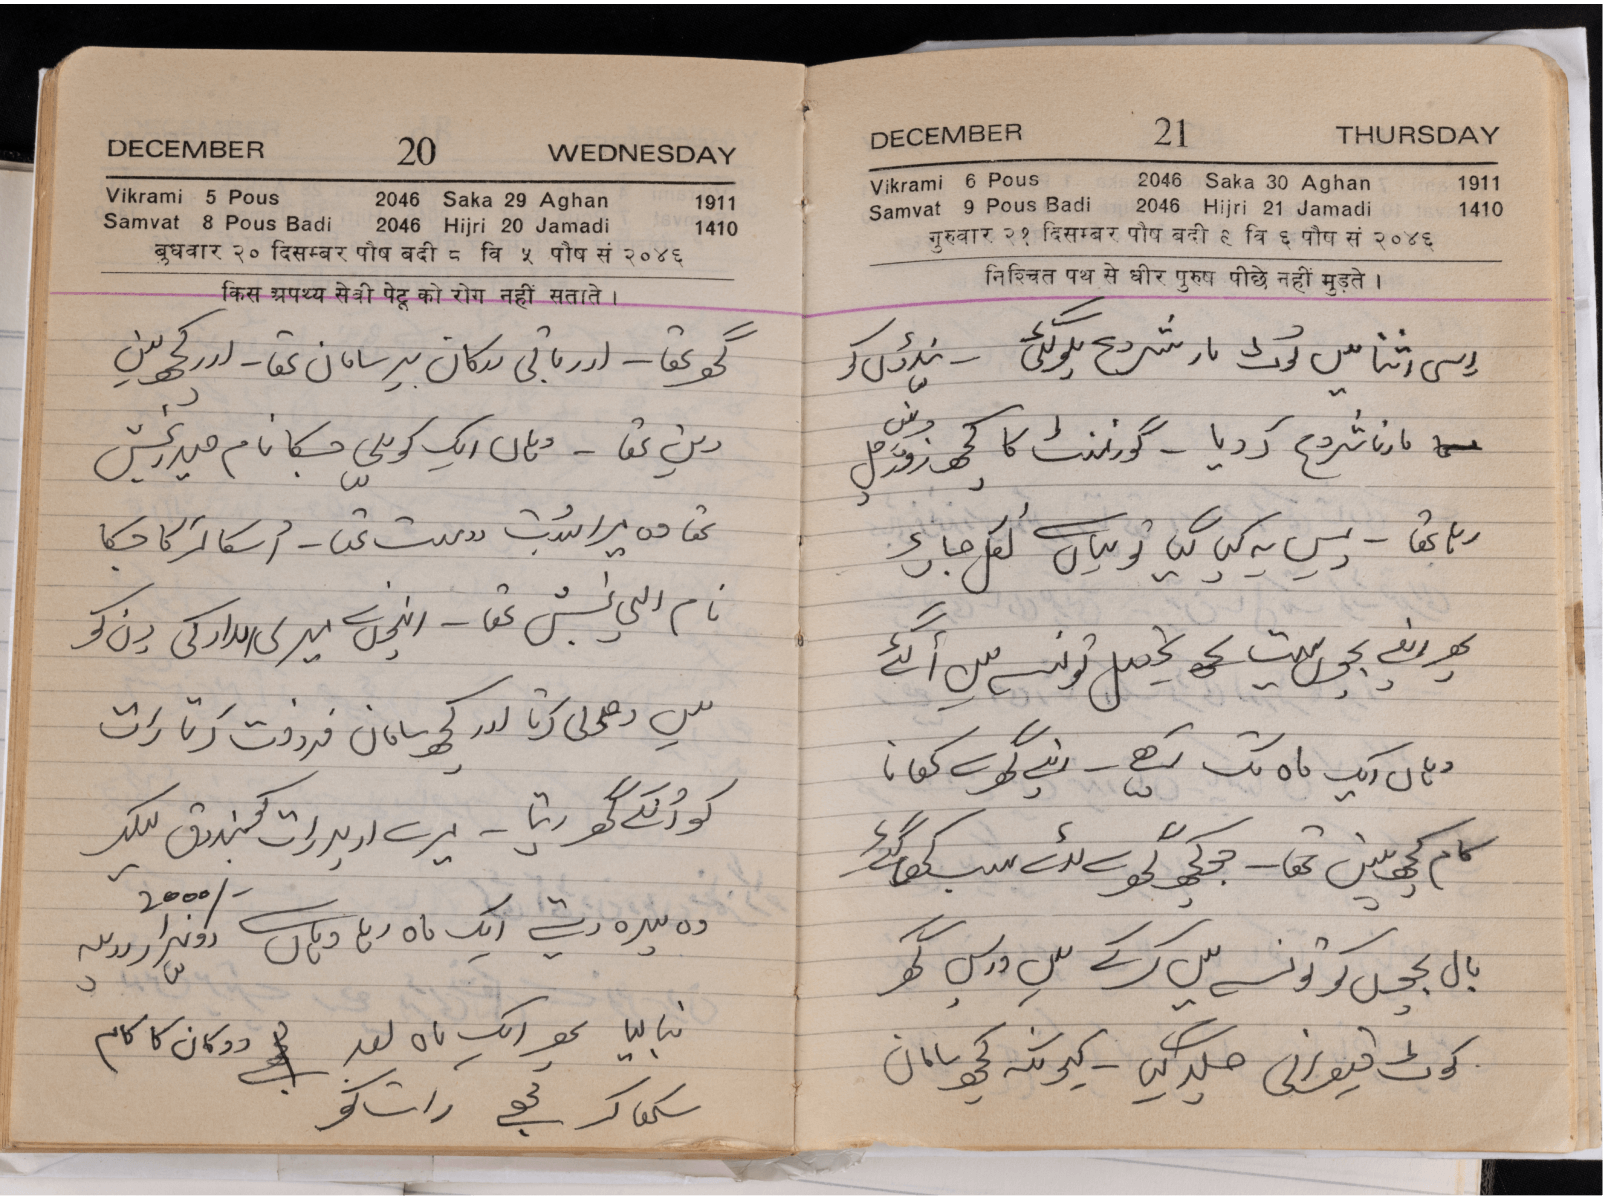 DECEMBER 20 WEDNESDAY
Vikrami 5 Pous 2046 Saka 29 Aghan 1911
Samvat 8 Pous Badi 2046 Hijri 20 Jamadi 1410
बुधवार २० दिसम्बर पौष बदी ८ वि ५ पौष सं २०४६
किस अपथ्य सेवी पेटू को रोग नहीं सताते ।
گھر تھا - اور باقی دوکان پر سامان تھا - اور کچھ نہیں
وہاں ایک جسکا نام حیدر بخش
تھا وہ میرا دوست تھا - اُسکا لڑکا جسکا
نام الہی بخش تھا - انہوں نے میری امداد کی دن کو
میں کرتا اور کچھ سامان فروخت کرتا رات
کو اُنکے گھر رہتا - میرے اوپر رات کو بندوق لیکر
2000/-
وہ پہرہ دیتے ایک ماہ رہا وہاں سے دو ہزار روپیہ
بنا لیا پھر ایک ماہ بعد دوکان کا کام
سکھا کر مجھے رات کو
DECEMBER 21 THURSDAY
Vikrami 6 Pous 2046 Saka 30 Aghan 1911
Samvat 9 Pous Badi 2046 Hijri 21 Jamadi 1410
गुरुवार २१ दिसम्बर पौष बदी ९ वि ६ पौष सं २०४६
निश्चित पथ से धीर पुरुष पीछे नहीं मुड़ते ।
اسی اثنا میں لوٹ مار شروع ہو گئی - ہندوؤں کو
مارنا شروع کر دیا - گورنمنٹ کا کچھ زور نہیں چل
رہا تھا - ہمیں یہ کہا گیا تو یہاں سے نکل جاؤ
پھر اپنے بچوں سمیت تحصیل تونسہ میں آ گئے
وہاں ایک ماہ تک رہے - اپنے گھر سے کھانا
کام کچھ نہیں تھا - جو کچھ گھر سے لائے سب کھا گئے
بال بچوں کو تونسہ میں کر کے میں واپس گھر
کوٹ قیصرانی چلا گیا - کیونکہ کچھ سامان